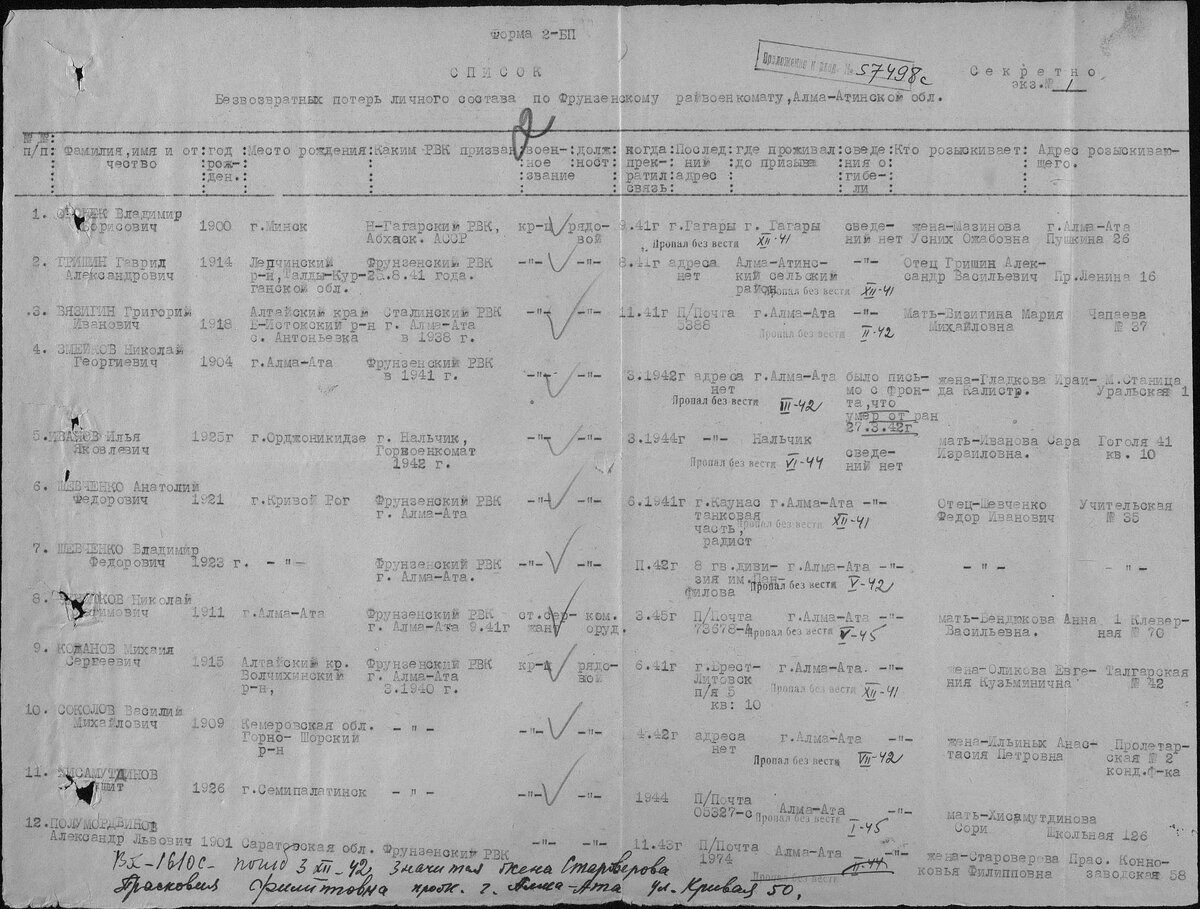 Форма 2-БП
Приложение к вход. № 57498с
СПИСОК Секретно
экз.№ 1
Безвозвратных потерь личного состава по Фрунзенскому райвоенкомату, Алма-Атинской обл.
2
№№: п/п: Фамилия,имя и отчество :год рожден.: Место рождения: Каким РВК призван: военное звание :должност: когда прекратил связь: Последний адрес :где проживал до призыва :сведения о гибели :Кто розыскивает: Адрес розыскивающего.
1. Владимир Борисович 1900 г.Минск Н-Гагарский РВК, Абхаск. АССР кр-ц рядовой 9.41г г.Гагары г. Гагары сведений нет жена-Мазинова Усних Ожабовна г.Алма-Ата Пушкина 26
Пропал без вести XII-41
2. ГРИШИН Гаврил Александрович 1914 Лепчинский р-н, Талды-Курганской обл. Фрунзенский РВК 25.8.41 года. -"- -"- 8.41г адреса нет Алма-Атинский сельский район -"- Отец Гришин Александр Васильевич Пр.Ленина 16
Пропал без вести XII-41
3. ВЯЗИГИН Григорий Иванович 1918 Алтайский край В-Истокский р-н с. Антоньевка Сталинский РВК г. Алма-Ата в 1938 г. -"- -"- 11.41г П/Почта 5388 г.Алма-Ата -"- Мать-Визигина Мария Михайловна Чапаева № 37
Пропал без вести II-42
4. ЗМЕЙКОВ Николай Георгиевич 1904 г.Алма-Ата Фрунзенский РВК в 1941 г. -"- -"- 3.1942г адреса нет г.Алма-Ата было письмо с фронта,что умер от ран 27.3.42г жена-Гладкова Ираида Калистр. М.Станица Уральская 1
Пропал без вести III-42
5. ИВАНОВ Илья Яковлевич 1925г г.Орджоникидзе г. Нальчик, Горвоенкомат 1942 г. -"- -"- 3.1944г -"- Нальчик сведений нет мать-Иванова Сара Израиловна. Гоголя 41 кв. 10
Пропал без вести VI-44
6. ШЕВЧЕНКО Анатолий Федорович 1921 г.Кривой Рог Фрунзенский РВК г. Алма-Ата -"- -"- 6.1941г г.Каунас танковая часть, радист г.Алма-Ата -"- Отец-Шевченко Федор Иванович Учительская № 35
Пропал без вести XII-41
7. ШЕВЧЕНКО Владимир Федорович 1923 г. -"- Фрунзенский РВК г. Алма-Ата. -"- -"- П.42г 8 гв.дивизия им.Панфилова г.Алма-Ата -"- -"- -"-
Пропал без вести V-42
8. Николай 1911 г.Алма-Ата Фрунзенский РВК г. Алма-Ата 9.41г ст.сержант ком. оруд. 3.45г П/Почта 73678-А г.Алма-Ата -"- мать-Бендюкова Анна Васильевна. 1 Клеверная № 70
Пропал без вести V-45
9. КОЖАНОВ Михаил Сергеевич 1915 Алтайский кр. Волчихинский р-н, Фрунзенский РВК г. Алма-Ата 3.1940 г. кр-ц рядовой 6.41г г.Брест-Литовск п/я 5 кв: 10 г.Алма-Ата. -"- жена-Оликова Евгения Кузьминична Талгарская № 42
Пропал без вести XII-41
10. СОКОЛОВ Василий Михайлович 1909 Кемеровская обл. Горно-Шорский р-н -"- -"- -"- 4.42г адреса нет г.Алма-Ата -"- жена-Ильиных Анастасия Петровна Пролетарская № 2 конд.ф-ка
Пропал без вести VII-42
11. 1926 г.Семипалатинск -"- -"- -"- 1944 П/Почта 05327-с Алма-Ата -"- мать-Хисамутдинова Сори Школьная 126
Пропал без вести I-45
12. ПОЛУМОРДВИНОВ Александр Львович 1901 Саратовская обл. Фрунзенский РВК -"- -"- 11.43г П/Почта 1974 Алма-Ата -"- жена-Староверова Прасковья Филипповна Конно-заводская 58
Пропал без вести II-44
Вх-1610с- погиб 3 XII-42, значится жена Староверова
Прасковия Филиповна прож. г. Алма-Ата ул. Кривая 50,